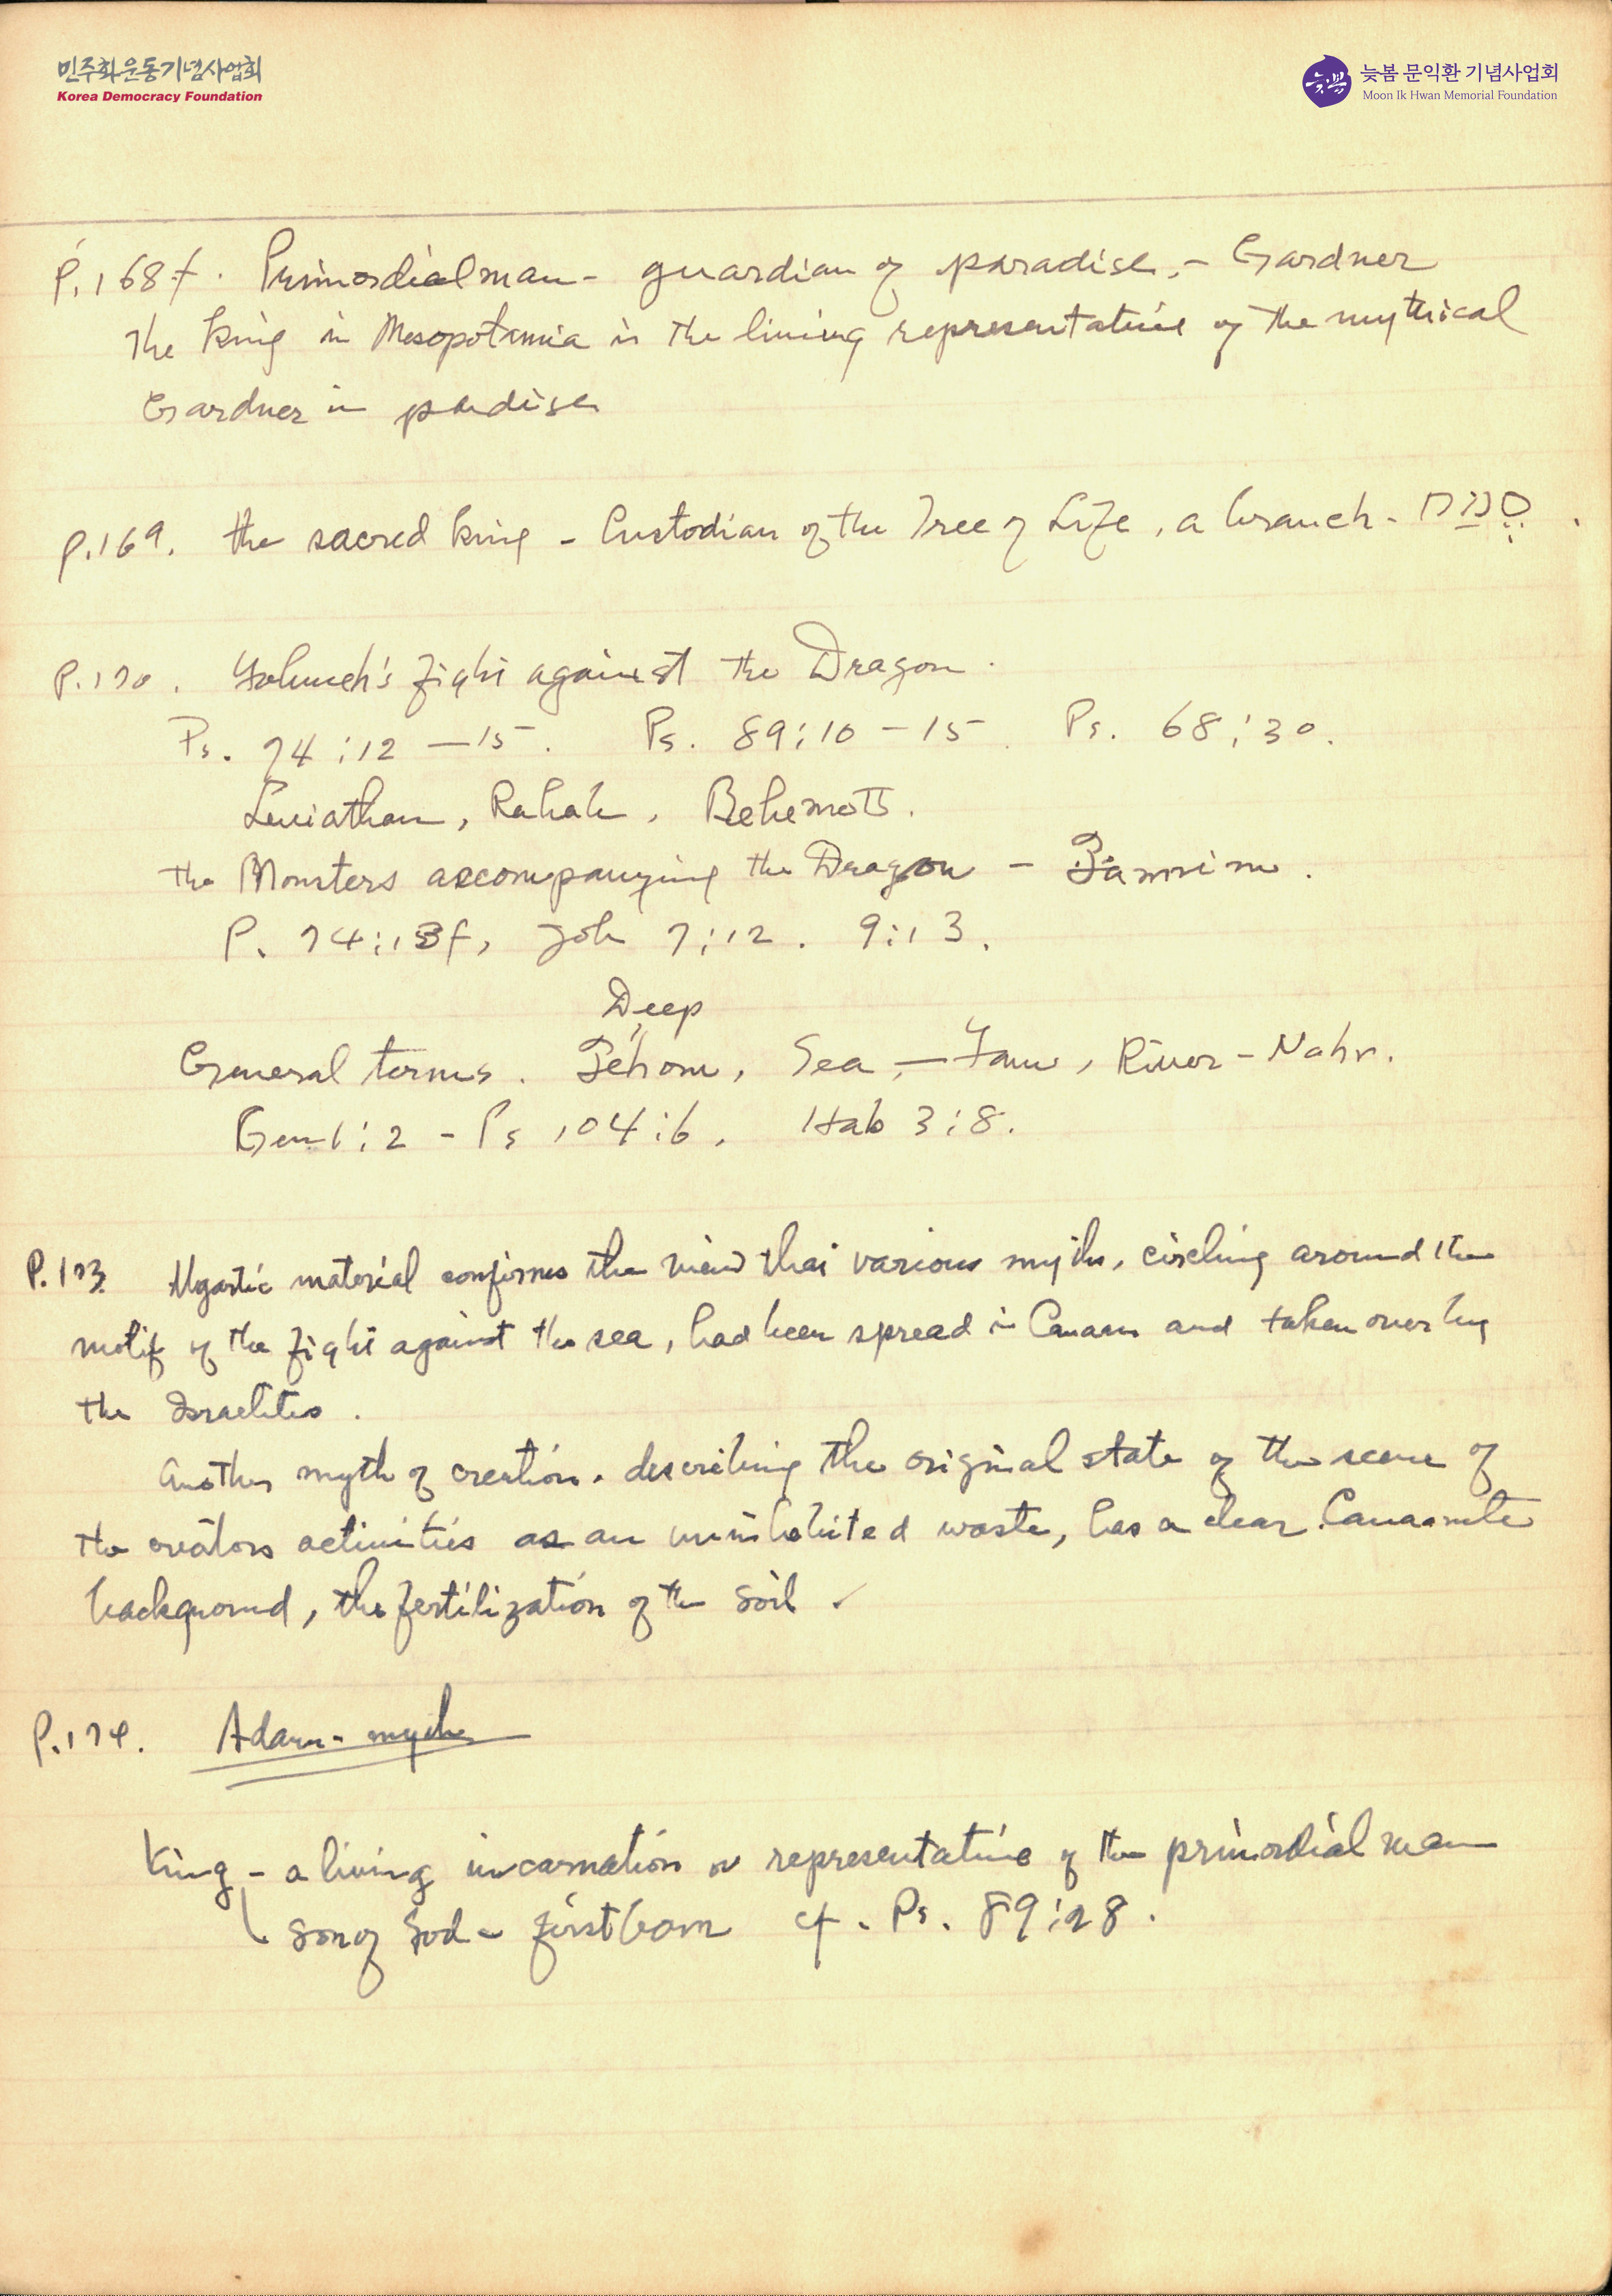 민주화운동기념사업회
Korea Democracy Foundation
늦봄
늦봄 문익환 기념사업회
Moon Ik Hwan Memorial Foundation
P.168f. Primordial man - guardian of paradise, - Gardner
The king in Mesopotamia is the living representative of the mythical
Gardner in
P.169. the sacred king - Custodian of the Tree of Life, a branch -
P.170. Yahweh's fight against the Dragon.
Ps. 74:12-15. Ps. 89:10-15. Ps. 68:30.
Leviathan, Rahab, Behemoth.
the Monsters accompanying the Dragon - Tannim.
P. 74:13f, Job 7:12. 9:13.
Deep
General terms. Tehom, Sea - Yam, River - Nahr.
Gen 1:2 - Ps 104:6, Hab 3:8.
P.173. Ugaritic material confirms the view that various myths, circling around the
motif of the fight against the sea, had been spread in Canaan and taken over by
the Israelites.
Another myth of creation, describing the original state of the scene of
the creators activities as an uninhabited waste, has a clear Canaanite
background, the fertilization of the soil.
P.174. Adam-myth
King - a living incarnation or representative of the primordial man
son of God - firstborn cf. Ps. 89:28.